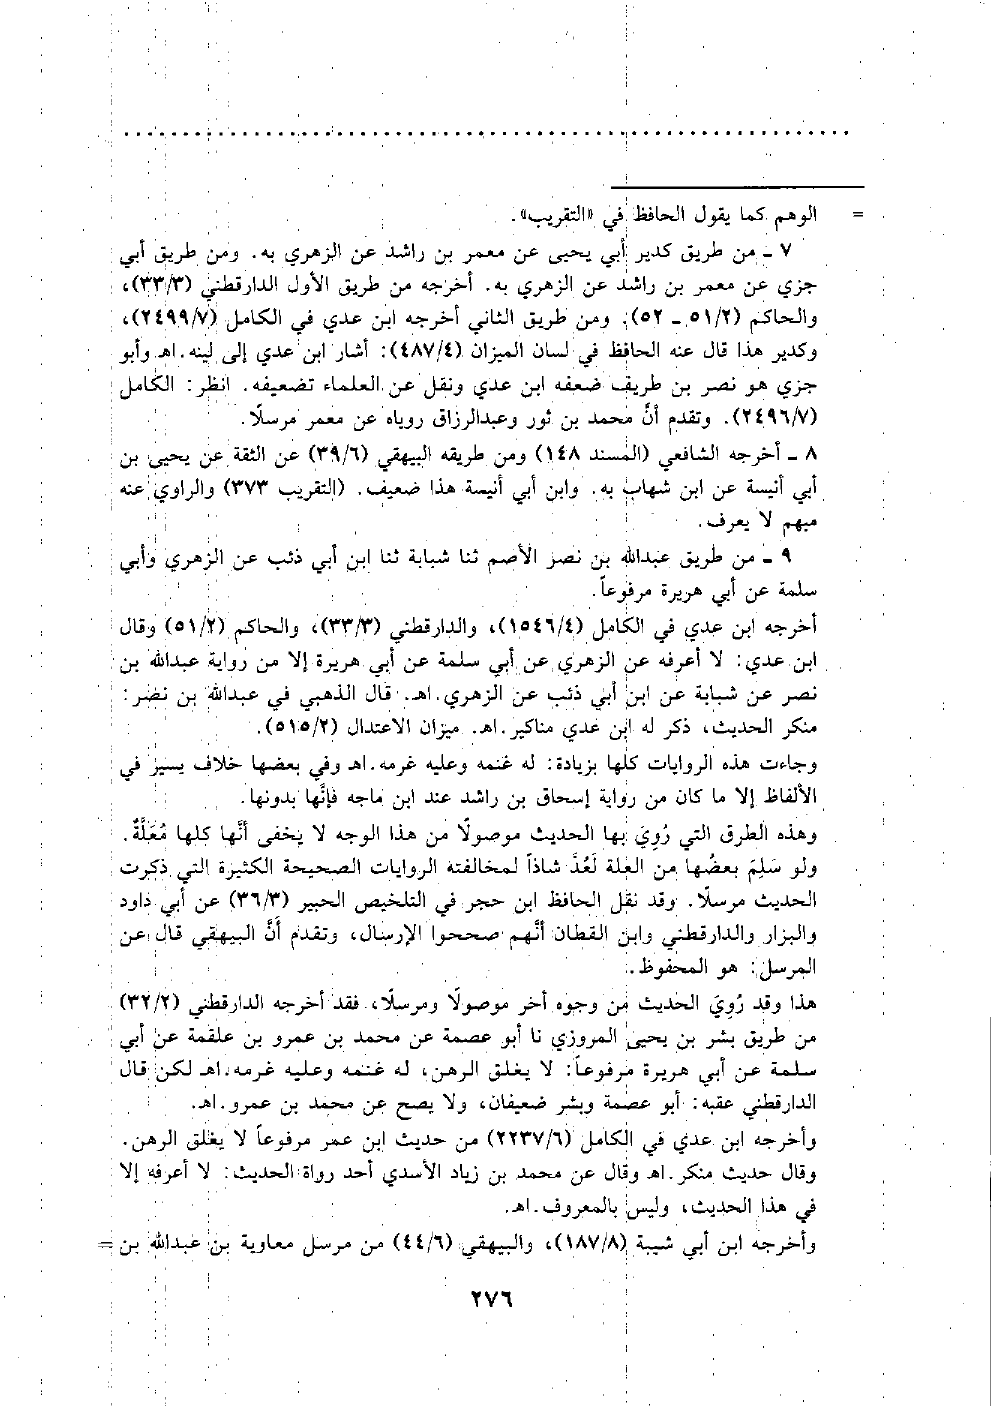 = الوهم كما يقول الحافظ في «التقريب».
٧ ـ من طريق كدير أبي يحيى عن معمر بن راشد عن الزهري به. ومن طريق أبي
جزي عن معمر بن راشد عن الزهري به. أخرجه من طريق الأول الدارقطني (٣٣/٣)،
والحاكم (٥١/٢ ـ ٥٢). ومن طريق الثاني أخرجه ابن عدي في الكامل (٢٤٩٩/٧)،
وكدير هذا قال عنه الحافظ في لسان الميزان (٤٨٧/٤): أشار ابن عدي إلى لينه.اهـ وأبو
جزي هو نصر بن طريف ضعفه ابن عدي ونقل عن العلماء تضعيفه. انظر: الكامل
(٢٤٩٦/٧). وتقدم أنَّ محمد بن ثور وعبدالرزاق روياه عن معمر مرسلًا.
٨ ـ أخرجه الشافعي (المسند ١٤٨) ومن طريقه البيهقي (٣٩/٦) عن الثقة عن يحيى بن
أبي أنيسة عن ابن شهاب به. وابن أبي أنيسة هذا ضعيف. (التقريب ٣٧٣) والراوي عنه
مبهم لا يعرف.
٩ ـ من طريق عبدالله بن نصر الأصم ثنا شبابة ثنا ابن أبي ذئب عن الزهري وأبي
سلمة عن أبي هريرة مرفوعاً.
أخرجه ابن عدي في الكامل (١٥٤٦/٤)، والدارقطني (٣٣/٣)، والحاكم (٥١/٢) وقال
ابن عدي: لا أعرفه عن الزهري عن أبي سلمة عن أبي هريرة إلا من رواية عبدالله بن
نصر عن شبابة عن ابن أبي ذئب عن الزهري.اهـ. قال الذهبي في عبدالله بن نصر:
منكر الحديث، ذكر له ابن عدي مناكير.اهـ. ميزان الاعتدال (٥١٥/٢).
وجاءت هذه الروايات كلها بزيادة: له غنمه وعليه غرمه.اهـ وفي بعضها خلاف يسير في
الألفاظ إلا ما كان من رواية إسحاق بن راشد عند ابن ماجه فإنَّها بدونها.
وهذه الطرق التي رُوِيَ بها الحديث موصولًا من هذا الوجه لا يخفى أنَّها كلها مُعَلَّةٌ.
ولو سَلِمَ بعضُها من العلة لَعُدَّ شاذاً لمخالفته الروايات الصحيحة الكثيرة التي ذكرت
الحديث مرسلًا. وقد نقل الحافظ ابن حجر في التلخيص الحبير (٣٦/٣) عن أبي داود
والبزار والدارقطني وابن القطان أنَّهم صححوا الإرسال، وتقدم أنَّ البيهقي قال عن
المرسل: هو المحفوظ.
هذا وقد رُوِيَ الحديث من وجوه أخر موصولًا ومرسلًا، فقد أخرجه الدارقطني (٣٢/٢)
من طريق بشر بن يحيى المروزي نا أبو عصمة عن محمد بن عمرو بن علقمة عن أبي
سلمة عن أبي هريرة مرفوعاً: لا يغلق الرهن، له غنمه وعليه غرمه.اهـ لكن قال
الدارقطني عقبه: أبو عصمة وبشر ضعيفان، ولا يصح عن محمد بن عمرو.اهـ.
وأخرجه ابن عدي في الكامل (٢٢٣٧/٦) من حديث ابن عمر مرفوعاً لا يغلق الرهن.
وقال حديث منكر.اهـ وقال عن محمد بن زياد الأسدي أحد رواة الحديث: لا أعرفه إلا
في هذا الحديث، وليس بالمعروف.اهـ.
وأخرجه ابن أبي شيبة (١٨٧/٨)، والبيهقي (٤٤/٦) من مرسل معاوية بن عبدالله بن =
٢٧٦